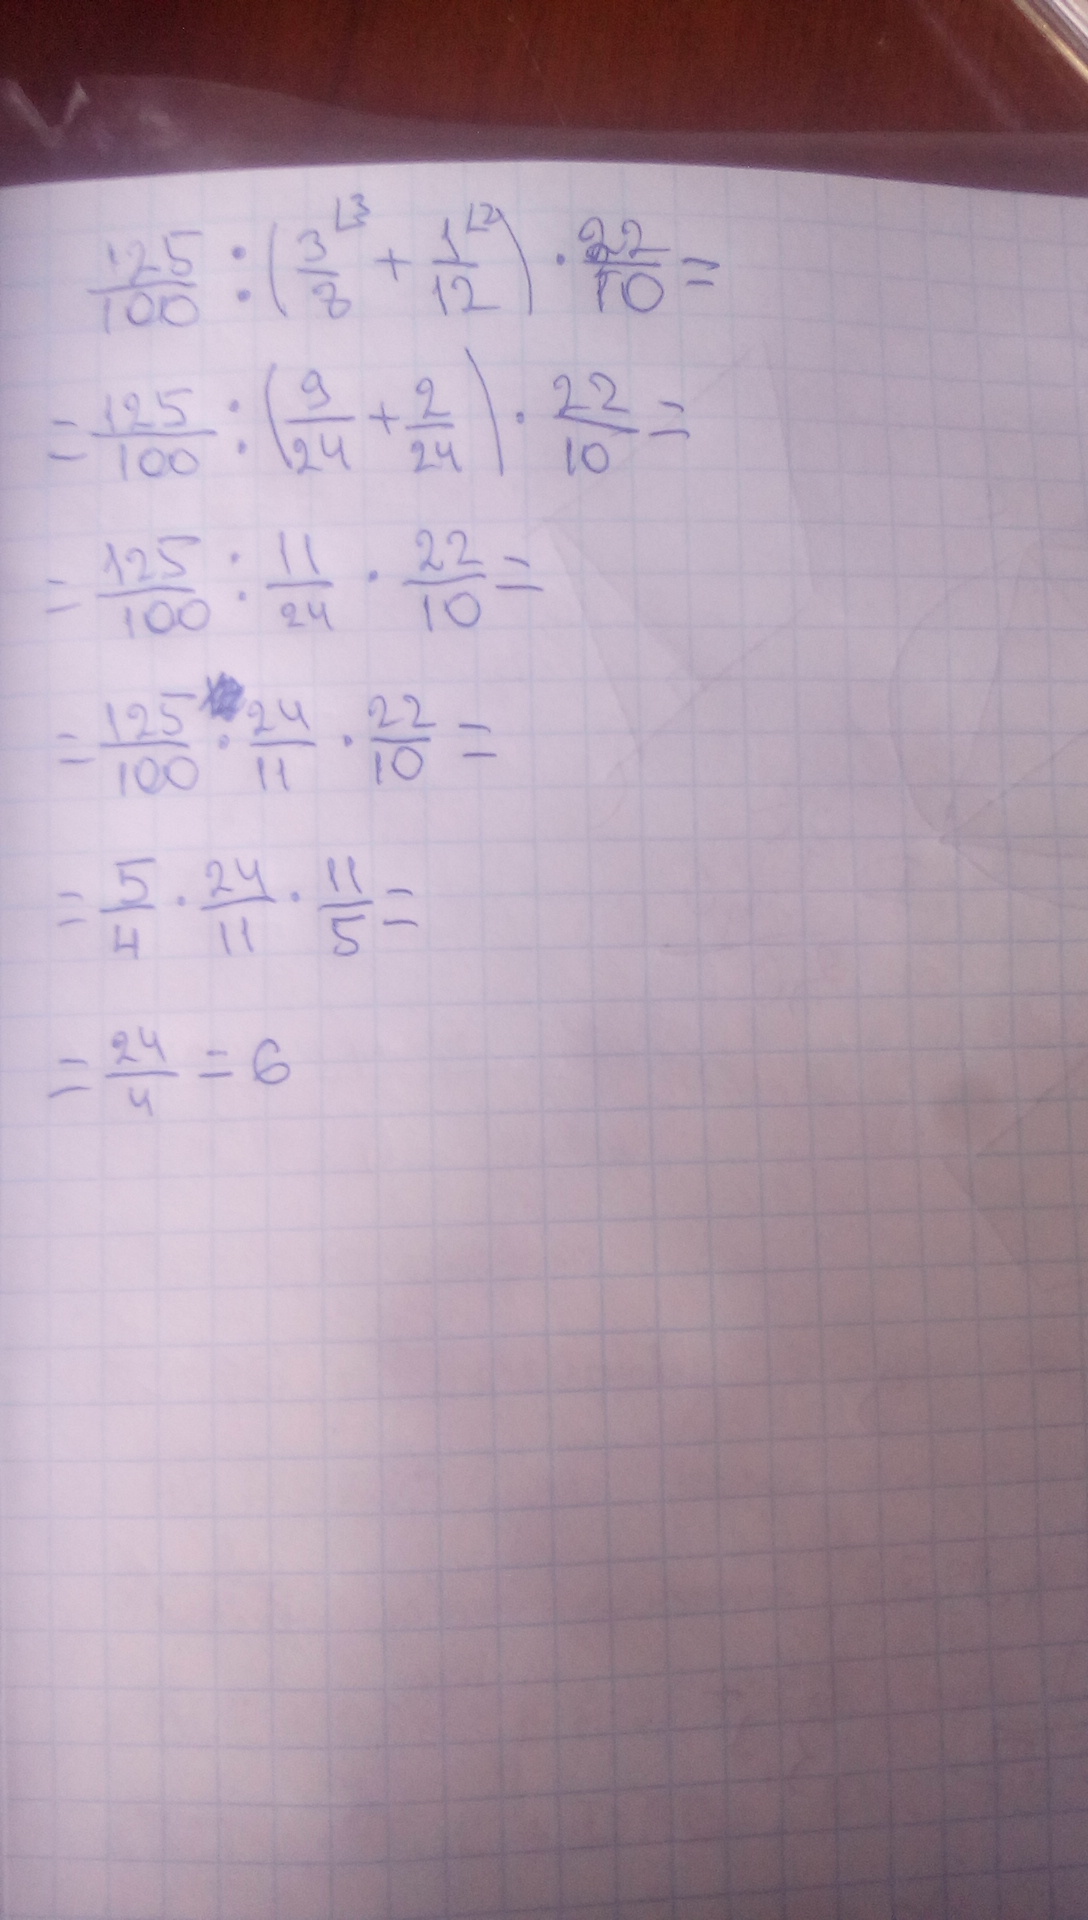 125/100 : (3/8 ⌊3 + 1/12 ⌊2) · 22/10 =
= 125/100 : (9/24 + 2/24) · 22/10 =
= 125/100 : 11/24 · 22/10 =
= 125/100 · 24/11 · 22/10 =
= 5/4 · 24/11 · 11/5 =
= 24/4 = 6